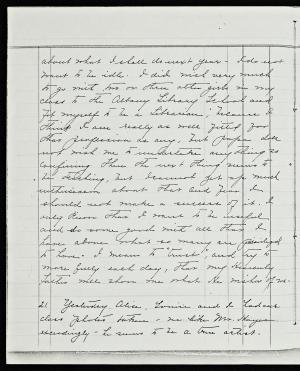 about what I shall do next year - I do not
want to be idle. I did wish very much
to go with two or three other girls in my
class to the Albany Library School and
fit myself to be a Librarian, because I
think I am really as well fitted for
that profession as any, but papa does
not wish me to undertake anything so
confining. Then the next thing seems to
be teaching, but I cannot get up much
enthusiasm about that and fear I
should not make a success of it. I
only know that I want to be useful
and do some good with all that I
have above what so many are privileged
to have. I mean to trust, and try to
more fully each day, that my Heavenly
Father will show me what He wishes of me.
21. Yesterday Alice, Louise and I had our
class photos taken - we like Mr.
exceedingly - he seems to be a true artist.